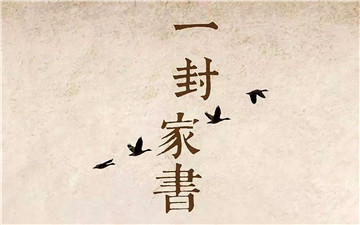 一封家書